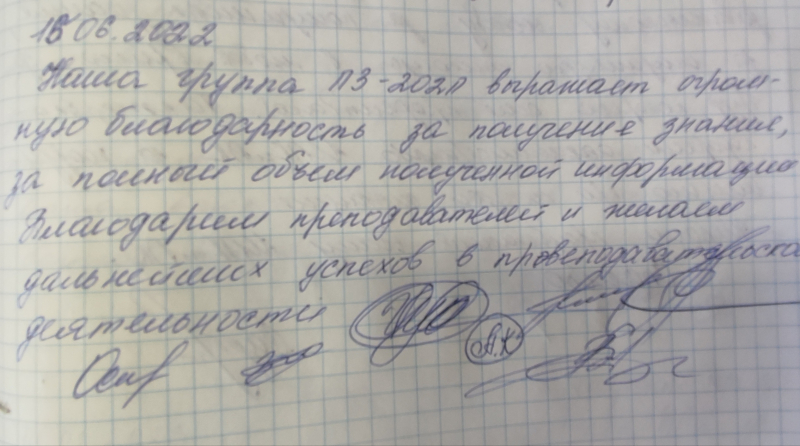 15 06.2022
Наша группа ПЗ-202П выражает огром-
ную благодарность за получение знания,
за полный объем полученной информации
Благодарим преподавателей и желаем
дальнейших успехов в провеподавательска
деятельности
А.К